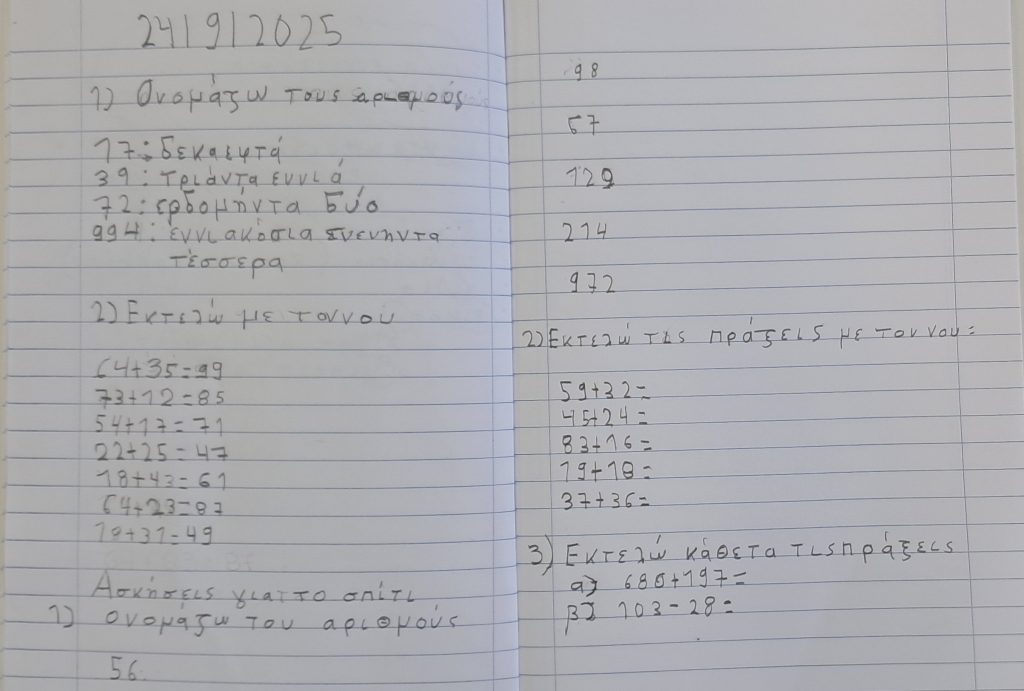 24/9/2025
1) Ονομάζω τους αριθμούς
17: δεκαεφτά
39: τριάντα εννιά
72: ερδομήντα δύο
994: εννιακόσια ενενηντα
τέσσερα
2) Εκτελώ με τοννου
64+35=99
73+12=85
54+17=71
22+25=47
18+43=61
64+23=87
18+31=49
Ασκήσεις γιαττο σπίτι
1) ονομάζω του αρισμούς
56
98
57
129
214
972
2) Εκτελώ τις πράξεις με τοννου:
59+32=
45+24=
83+16=
19+18=
37+36=
3) Εκτελώ κάθετα τις πράξεις
α) 685+197=
β) 103-28=